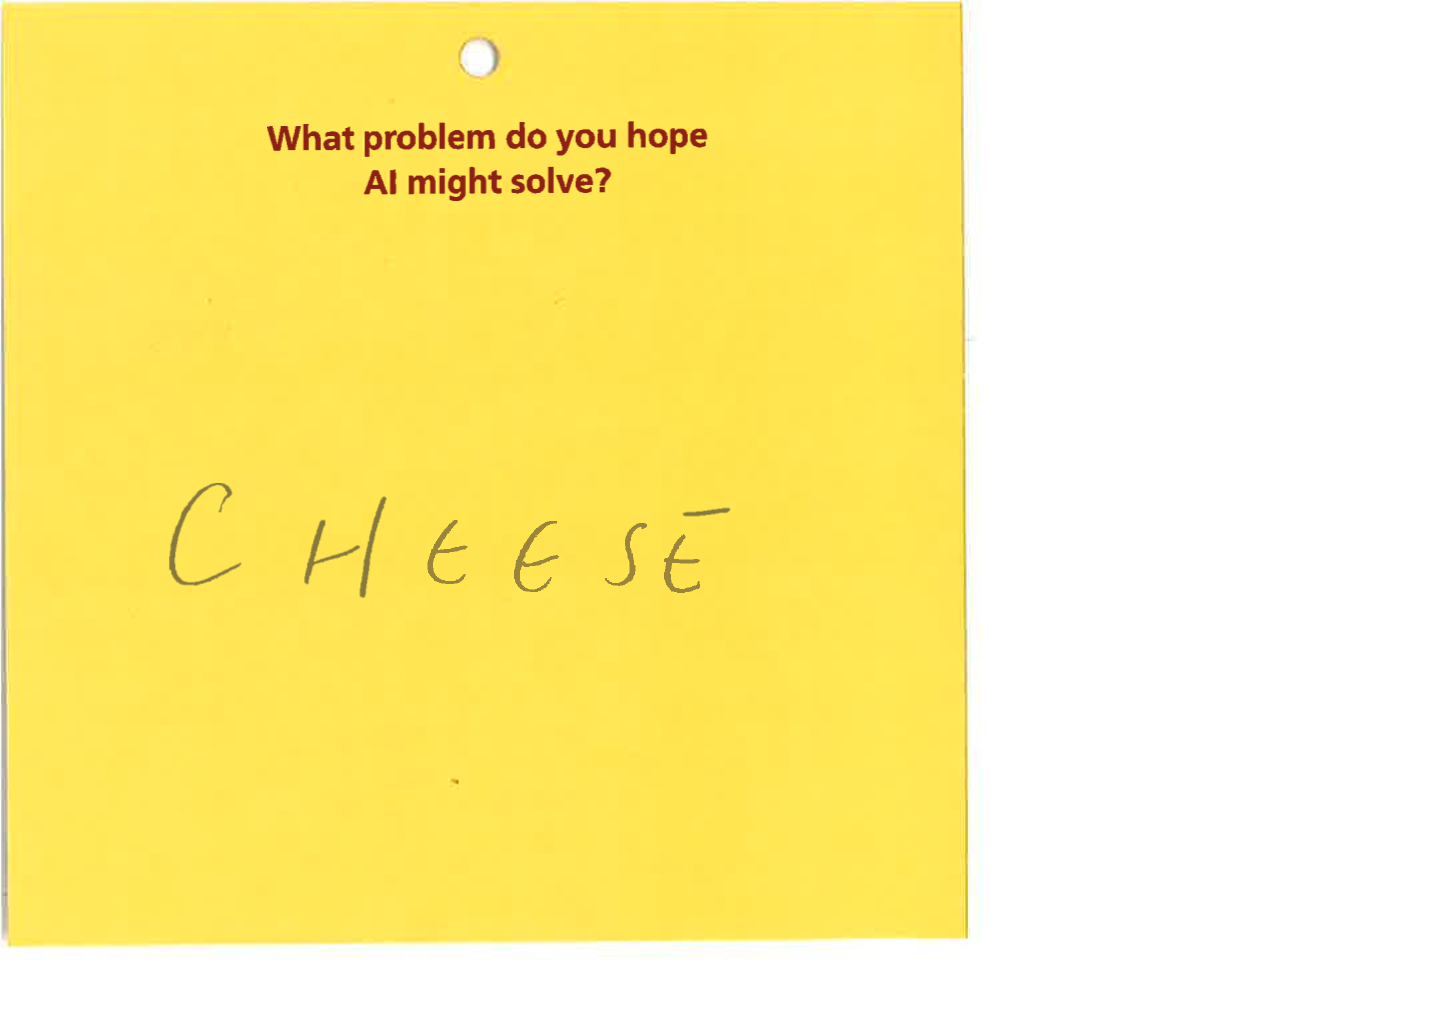 What problem do you hope
AI might solve?
CHEESE